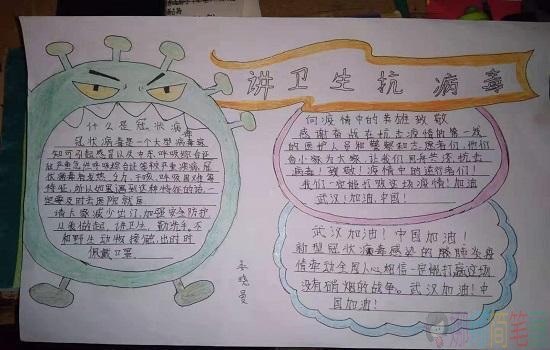 讲卫生抗病毒
什么是冠状病毒
冠状病毒是一个大型病毒家
知可引起感冒以及中东呼吸综合征
和严重急性呼吸综合征等较严重疾病。冠
状病毒有发热、乏力、干咳、呼吸困难等
特征,所以如果遇到这种特征的话,一
定要及时去医院就医
请大家减少出门,加强安全防护,
从我做起,讲卫生,勤洗手,不
和野生动物接触,出门时
佩戴口罩
向疫情中的英雄致敬
感谢奋战在抗击疫情的第一线
的医护人员和警察和志愿者们,他们
舍小家为大家,让我们
病毒!致敬!疫情中的逆行者们!
我们一定能打败这场疫情!加油
武汉!加油!中国!
武汉加油!中国加油!
新型冠状病毒感染的肺肺炎疫
情牵动全民人心相信一定能打赢这场
没有硝烟的战争。武汉加油!中
国加油!